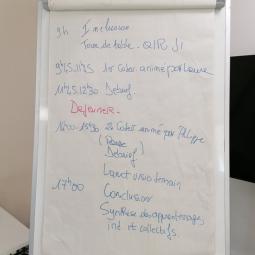 9h Inclusion
Tour de table - QIR J1
9h45.11h45 1er Codev animé par Laure
11h45.12h30 Debrief.
DéJeuNER -
14h00-15h30 2e Codev animé par Philippe
(Pause)
Debrief
17h00
Conclusion
Synthèse des apprentissages,
ind et collectifs.